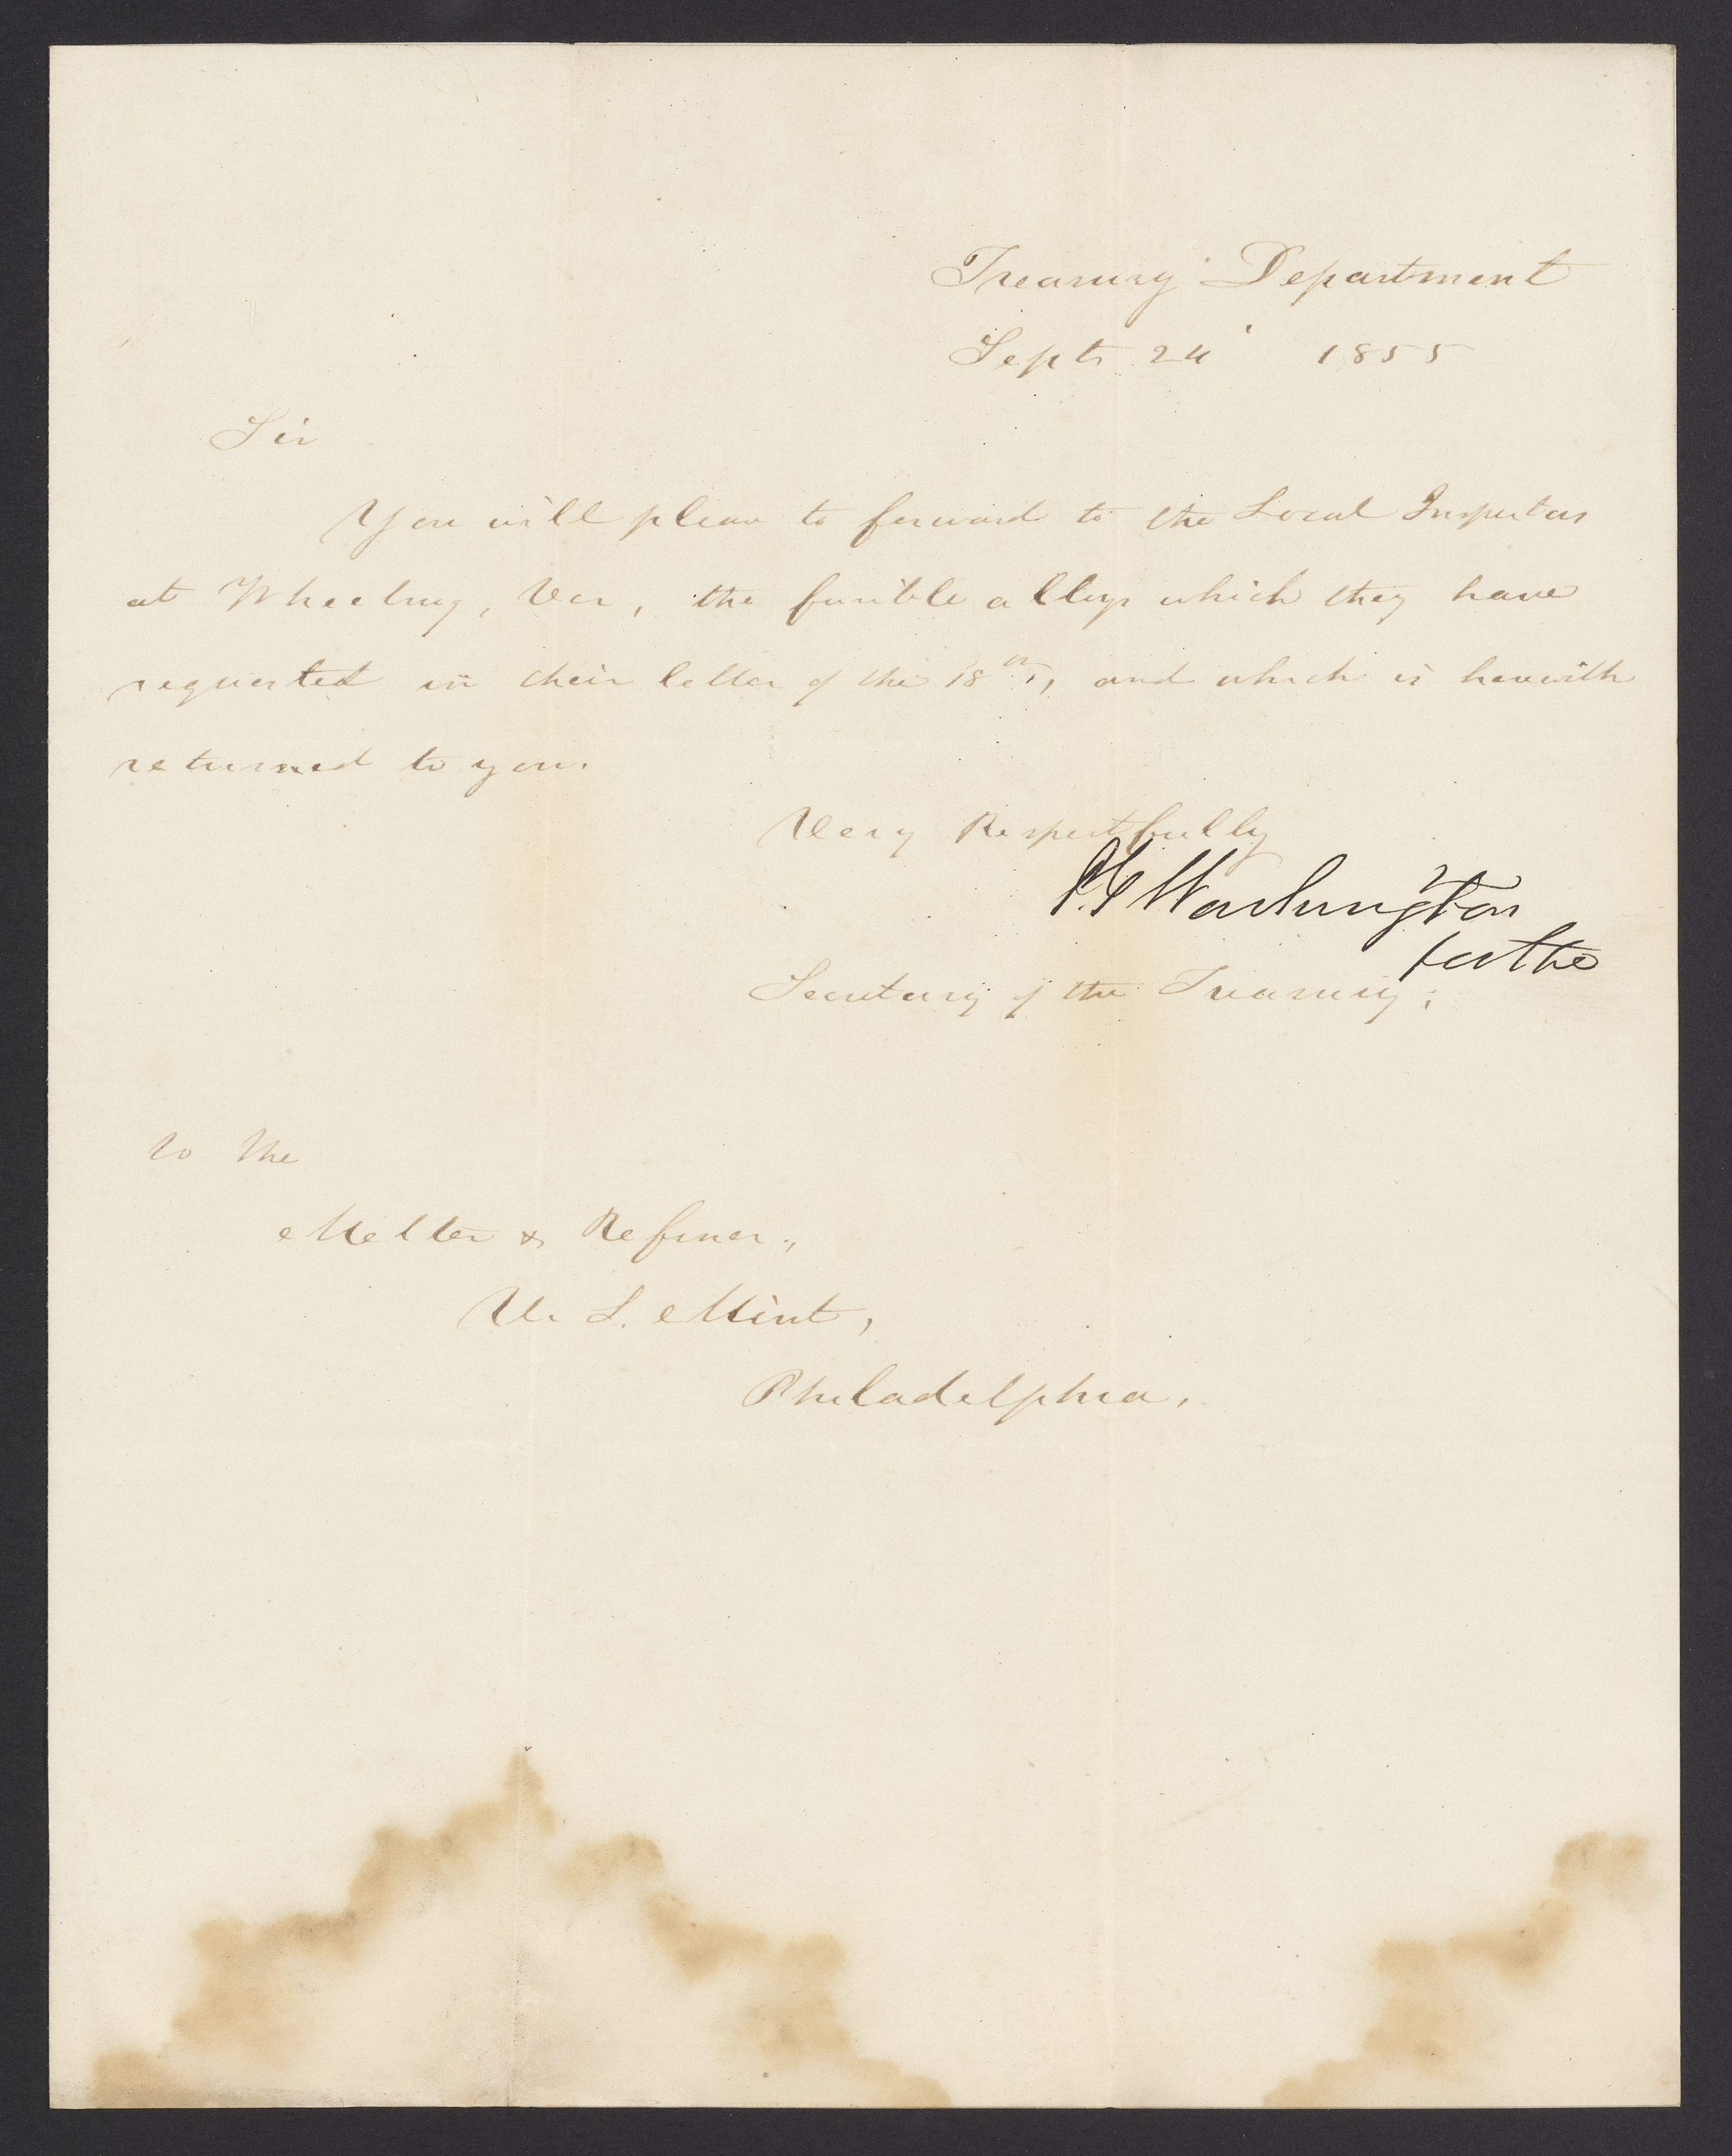 Treasury Department
Sept 24 1855
Sir
You will please to forward to the Local Inspectors
at Wheeling, Va, the fusible alloys which they have
requested in their letter of the 18th, and which is herewith
returned to you.
Very Respectfully
P.G. Washington
for the
Secretary of the Treasury.
To the
Melter & Refiner,
U. S. Mint,
Philadelphia.